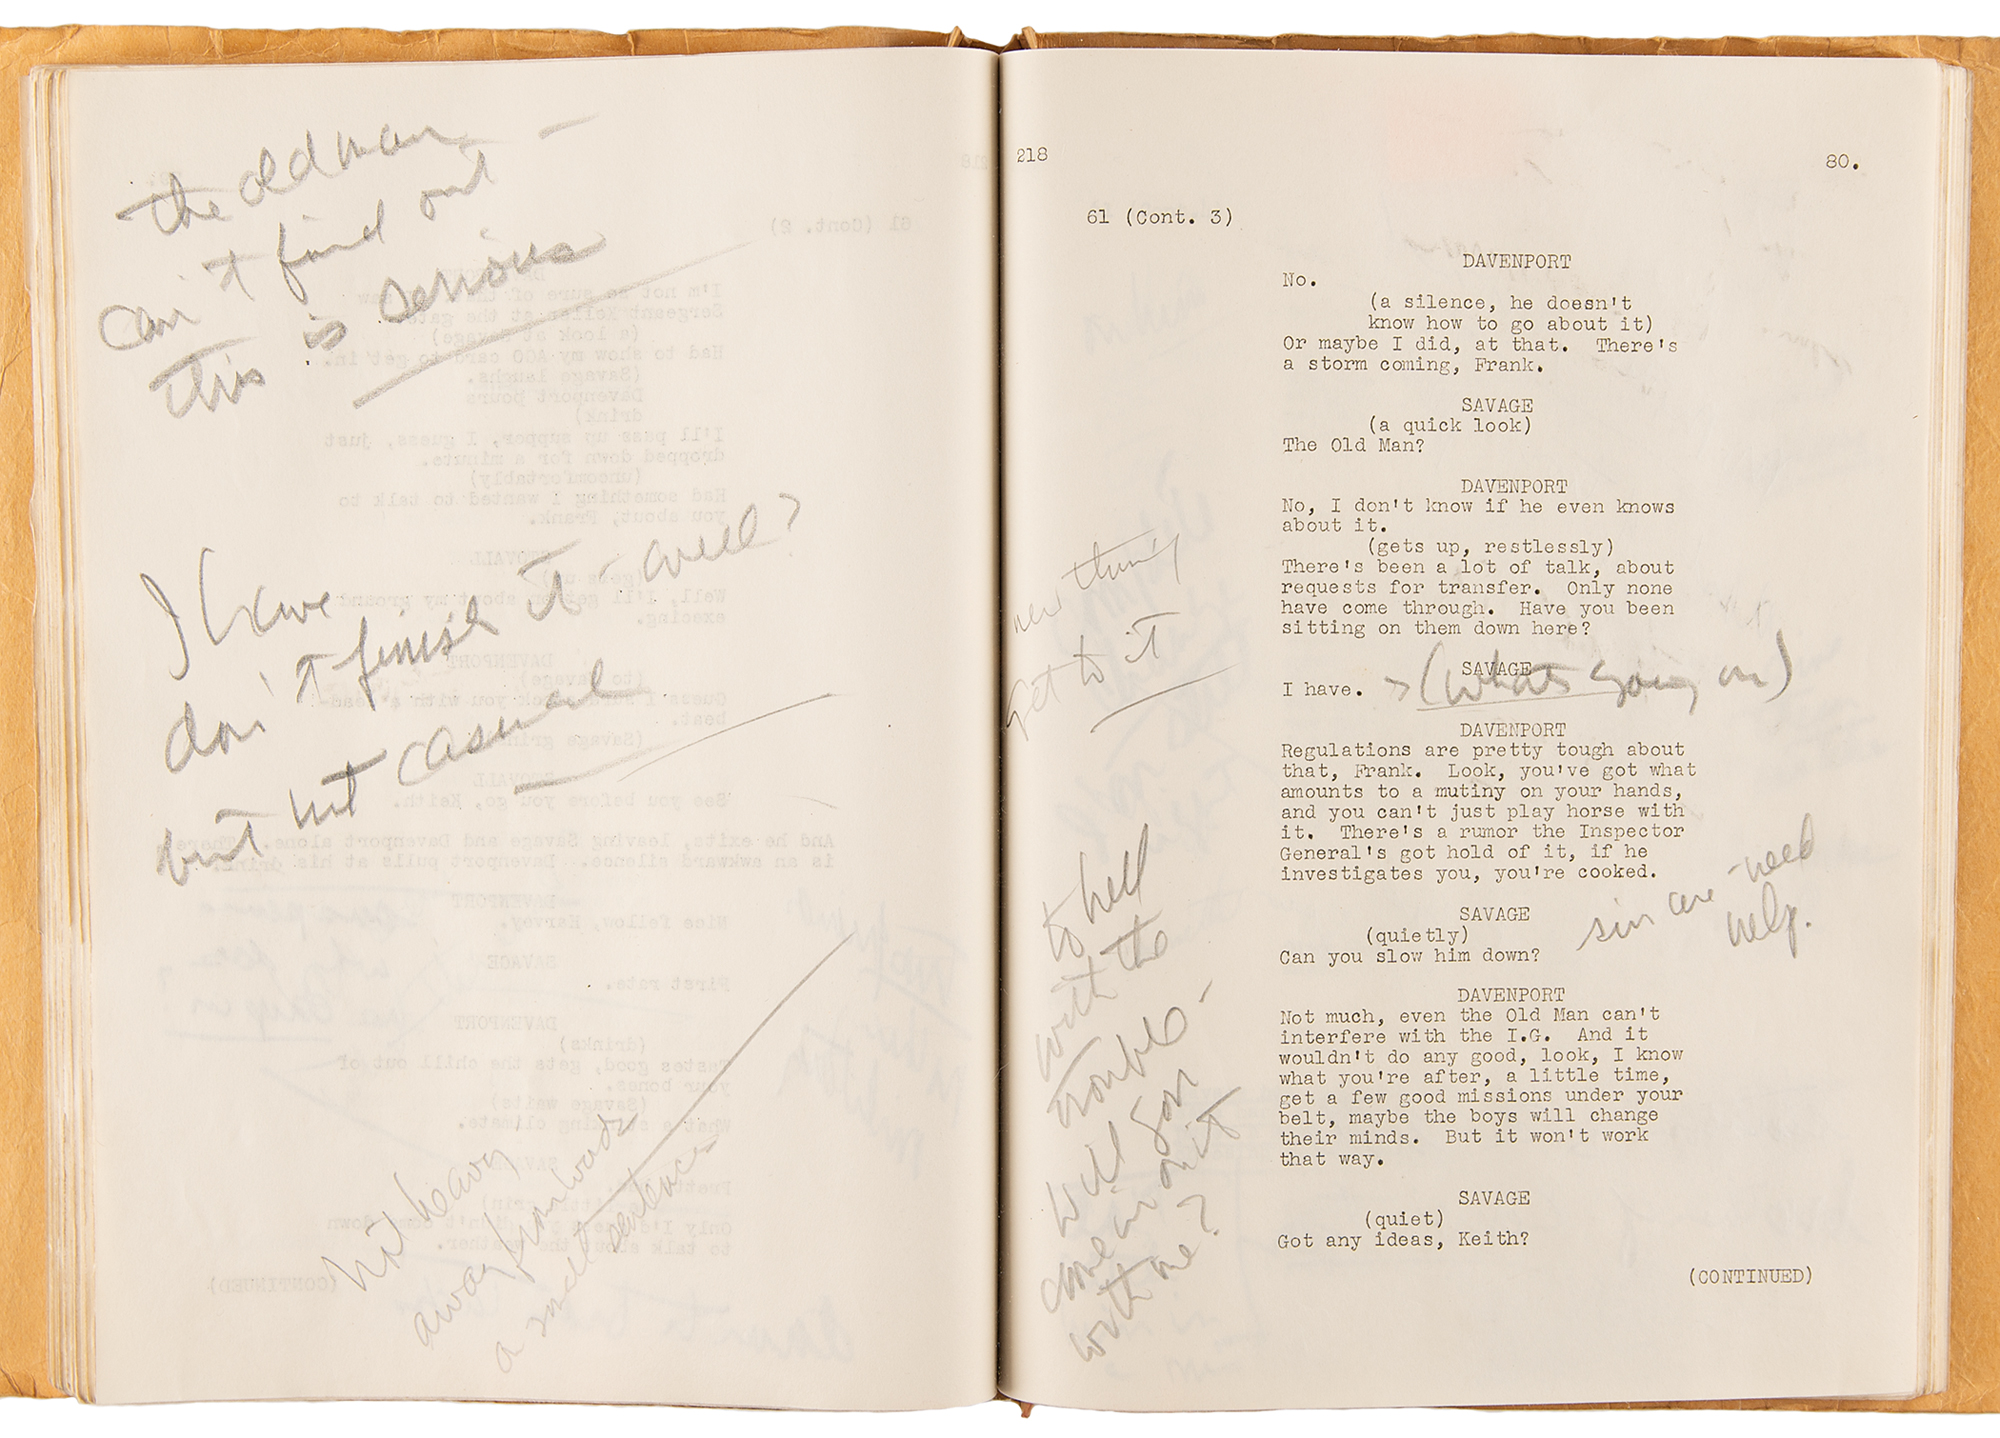 the old man —
can't find out
this is serious
I have
don't finish it - well?
but not casual
not heavy
away from words
a small sentence
218
80.
61 (Cont. 3)
DAVENPORT
No.
(a silence, he doesn't
know how to go about it)
Or maybe I did, at that. There's
a storm coming, Frank.
SAVAGE
(a quick look)
The Old Man?
DAVENPORT
No, I don't know if he even knows
about it.
(gets up, restlessly)
There's been a lot of talk, about
requests for transfer. Only none
have come through. Have you been
sitting on them down here?
SAVAGE
I have. > (whats going on)
DAVENPORT
Regulations are pretty tough about
that, Frank. Look, you've got what
amounts to a mutiny on your hands,
and you can't just play horse with
it. There's a rumor the Inspector
General's got hold of it, if he
investigates you, you're cooked.
SAVAGE
(quietly)
Can you slow him down?
sincere - need
help.
DAVENPORT
Not much, even the Old Man can't
interfere with the I.G. And it
wouldn't do any good, look, I know
what you're after, a little time,
get a few good missions under your
belt, maybe the boys will change
their minds. But it won't work
that way.
SAVAGE
(quiet)
Got any ideas, Keith?
(CONTINUED)
new thing
get to it
to hell
with the
trouble -
will you
come in on it
with me?